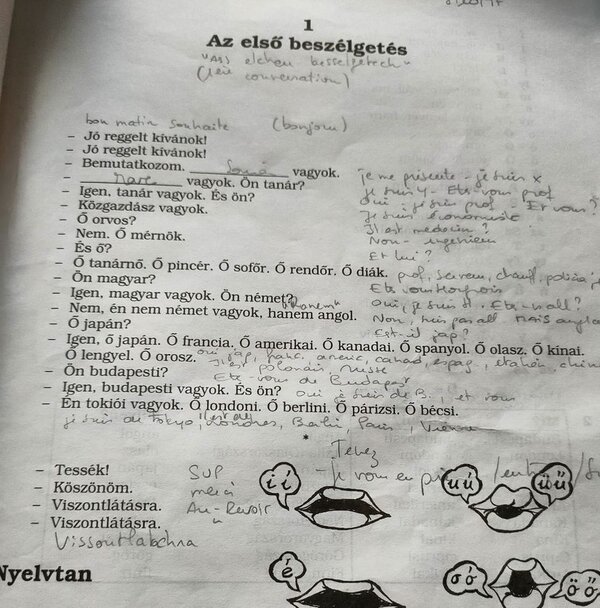 1
Az első beszélgetés
(1ère conversation)
bon matin souhaite (bonjour)
– Jó reggelt kívánok!
– Jó reggelt kívánok!
– Bemutatkozom. vagyok. je me présente - je suis x
– Marc vagyok. Ön tanár? je suis y - Etes-vous prof
– Igen, tanár vagyok. És ön? oui - je suis prof - Et vous?
– Közgazdász vagyok. Je suis économiste
– Ő orvos? Il est médecin?
– Nem. Ő mérnök. Non - ingénieur
– És ő? Et lui?
– Ő tanárnő. Ő pincér. Ő sofőr. Ő rendőr. Ő diák. prof, serveur, chauf, police
– Ön magyar? Etes vous Hongrois
– Igen, magyar vagyok. Ön német? oui, je suis H. Etes-v all?
– Nem, én nem német vagyok, hanem angol. Non, suis pas all MAIS anglais
– Ő japán? Est-il jap?
– Igen, ő japán. Ő francia. Ő amerikai. Ő kanadai. Ő spanyol. Ő olasz. Ő kínai.
Ő lengyel. Ő orosz. oui jap, franc, améric, canad, espag, italien, chin
polonais russe
– Ön budapesti? Etes-vous de Budapest
– Igen, budapesti vagyok. És ön? oui je suis de B., et vous
– Én tokiói vagyok. Ő londoni. Ő berlini. Ő párizsi. Ő bécsi.
je suis de Tokyo, Londres, Berlin, Paris, Vienne
*
– Tessék! SVP
– Köszönöm. merci
– Viszontlátásra. Au-Revoir
– Viszontlátásra. "
Nyelvtan
i í
u ú
ü ű
é
o ó
ö ő